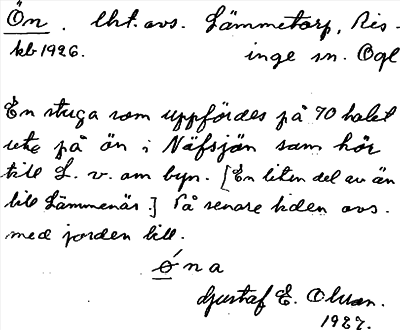 Ön. lht. avs. Lämmetorp, Ris-
kb 1926. inge sn. Ögl
En stuga som uppfördes på 70 halet
ute på ön i Näfsjön som hör
till L. v. om byn. [En liten del av än
till Lämmenäs] På senare tiden avs.
med jorden till.
öna
Gustaf E. Olsson.
1927.